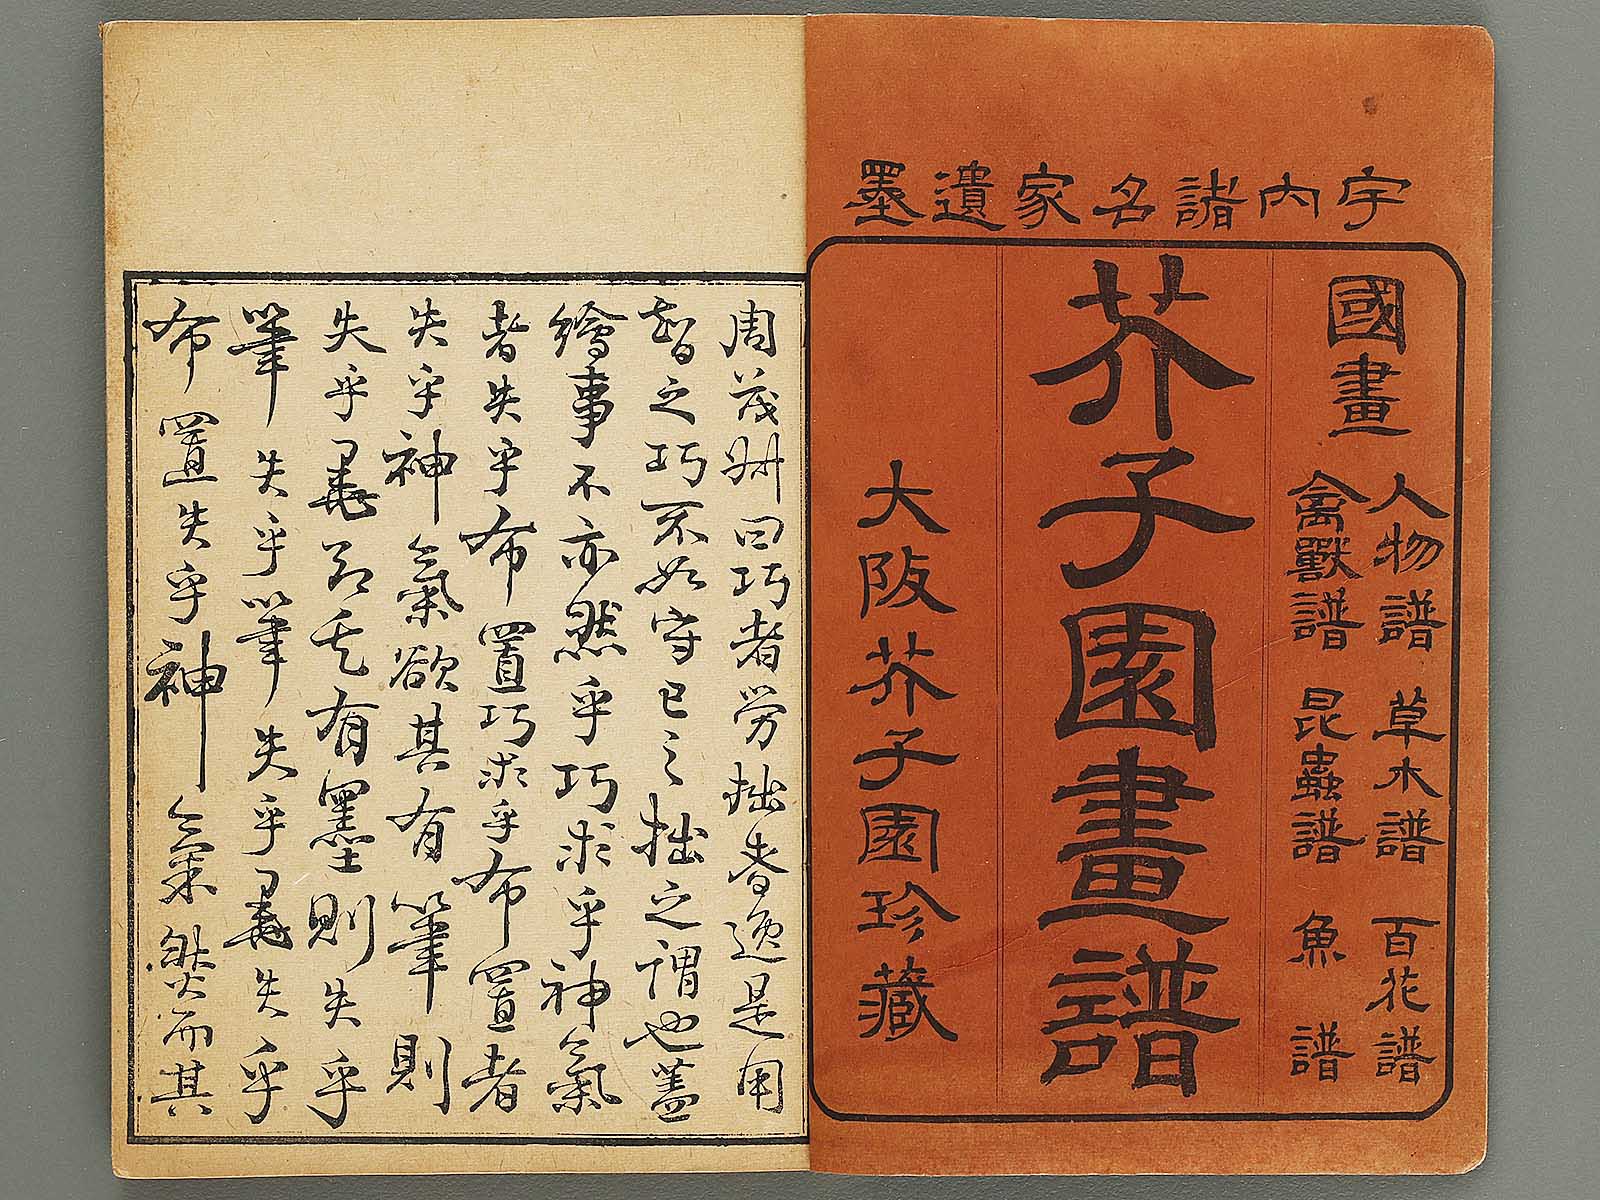 宇內諸名家遺墨
國畫
人物譜 草木譜 百花譜
禽獸譜 昆蟲譜 魚譜
芥子園畫譜
大阪芥子園珍藏
周茂州曰巧者労拙者逸是用
智之巧不如守已之拙之謂也蓋
繪事不亦然乎巧求乎神氣
者失乎布置巧求乎布置者
失乎神氣欲其有筆則
失乎有墨則失乎
筆失乎筆失乎失乎
布置失乎神氣然而其